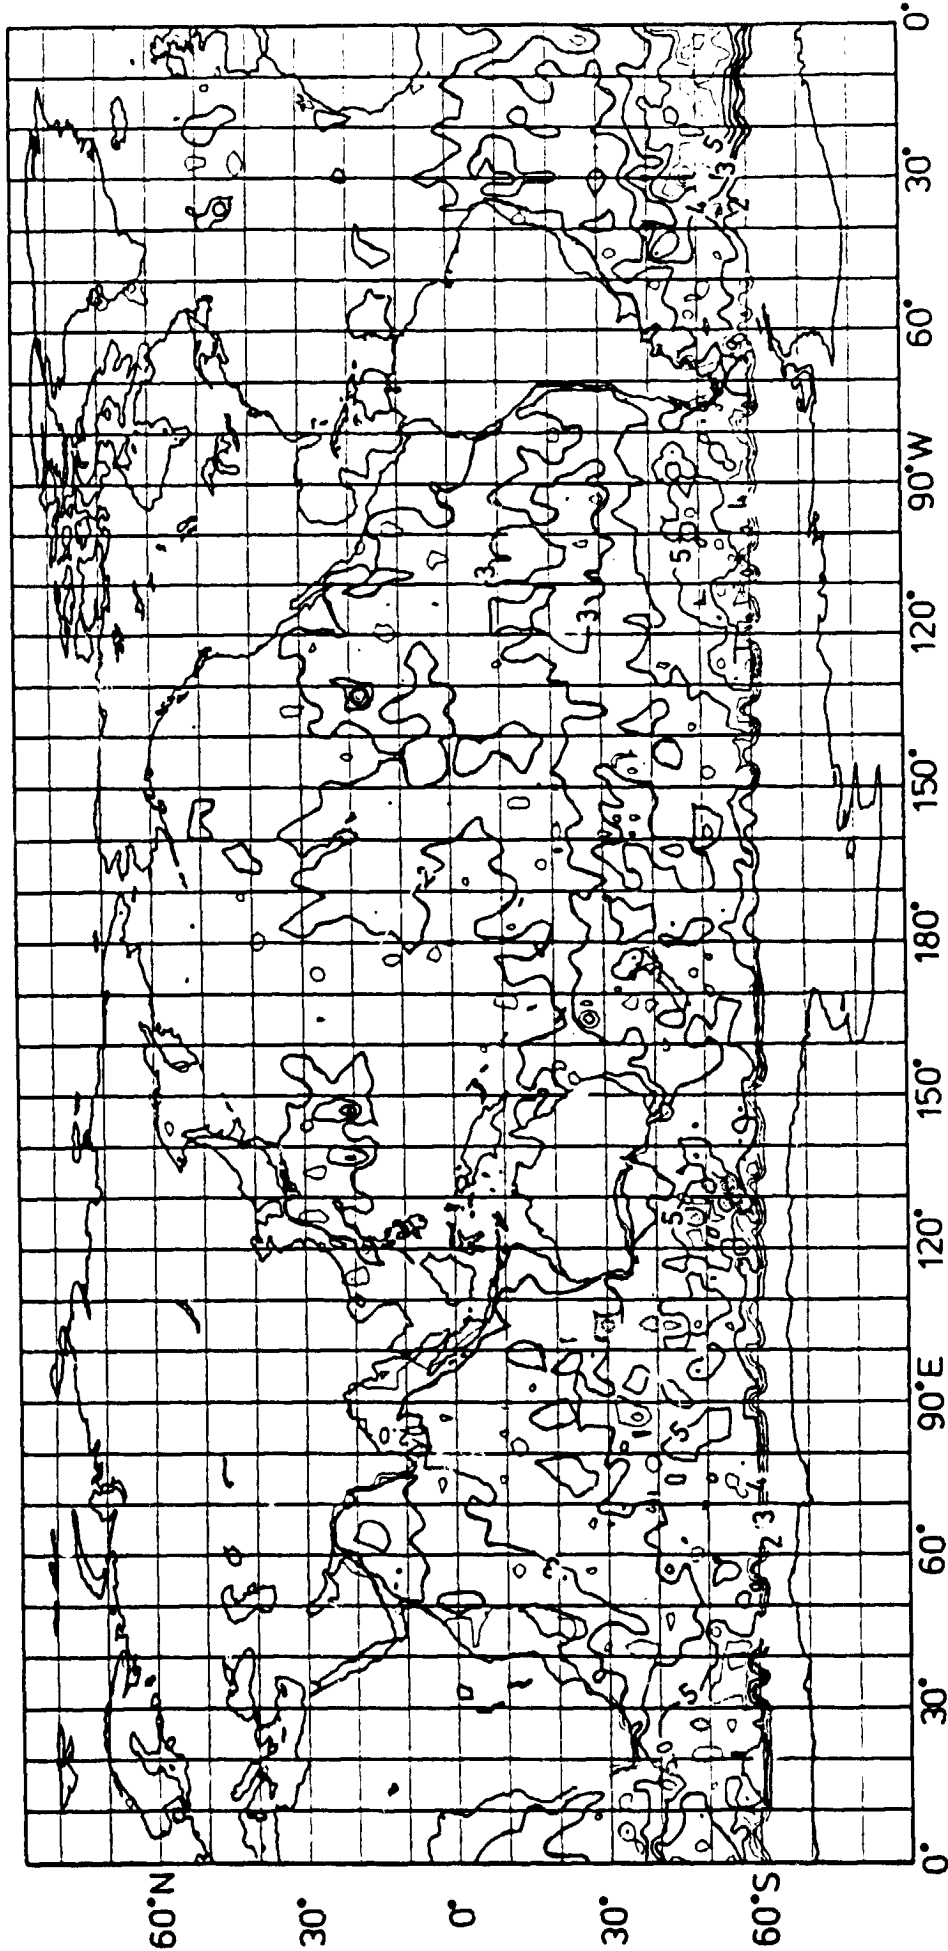 60°N
30°
0°
30°
60°S
0°
30°
60°
90°E
120°
150°
180°
150°
120°
90°W
60°
30°
0°
5
3
4
2
3
5
3
5
5
5
3
2